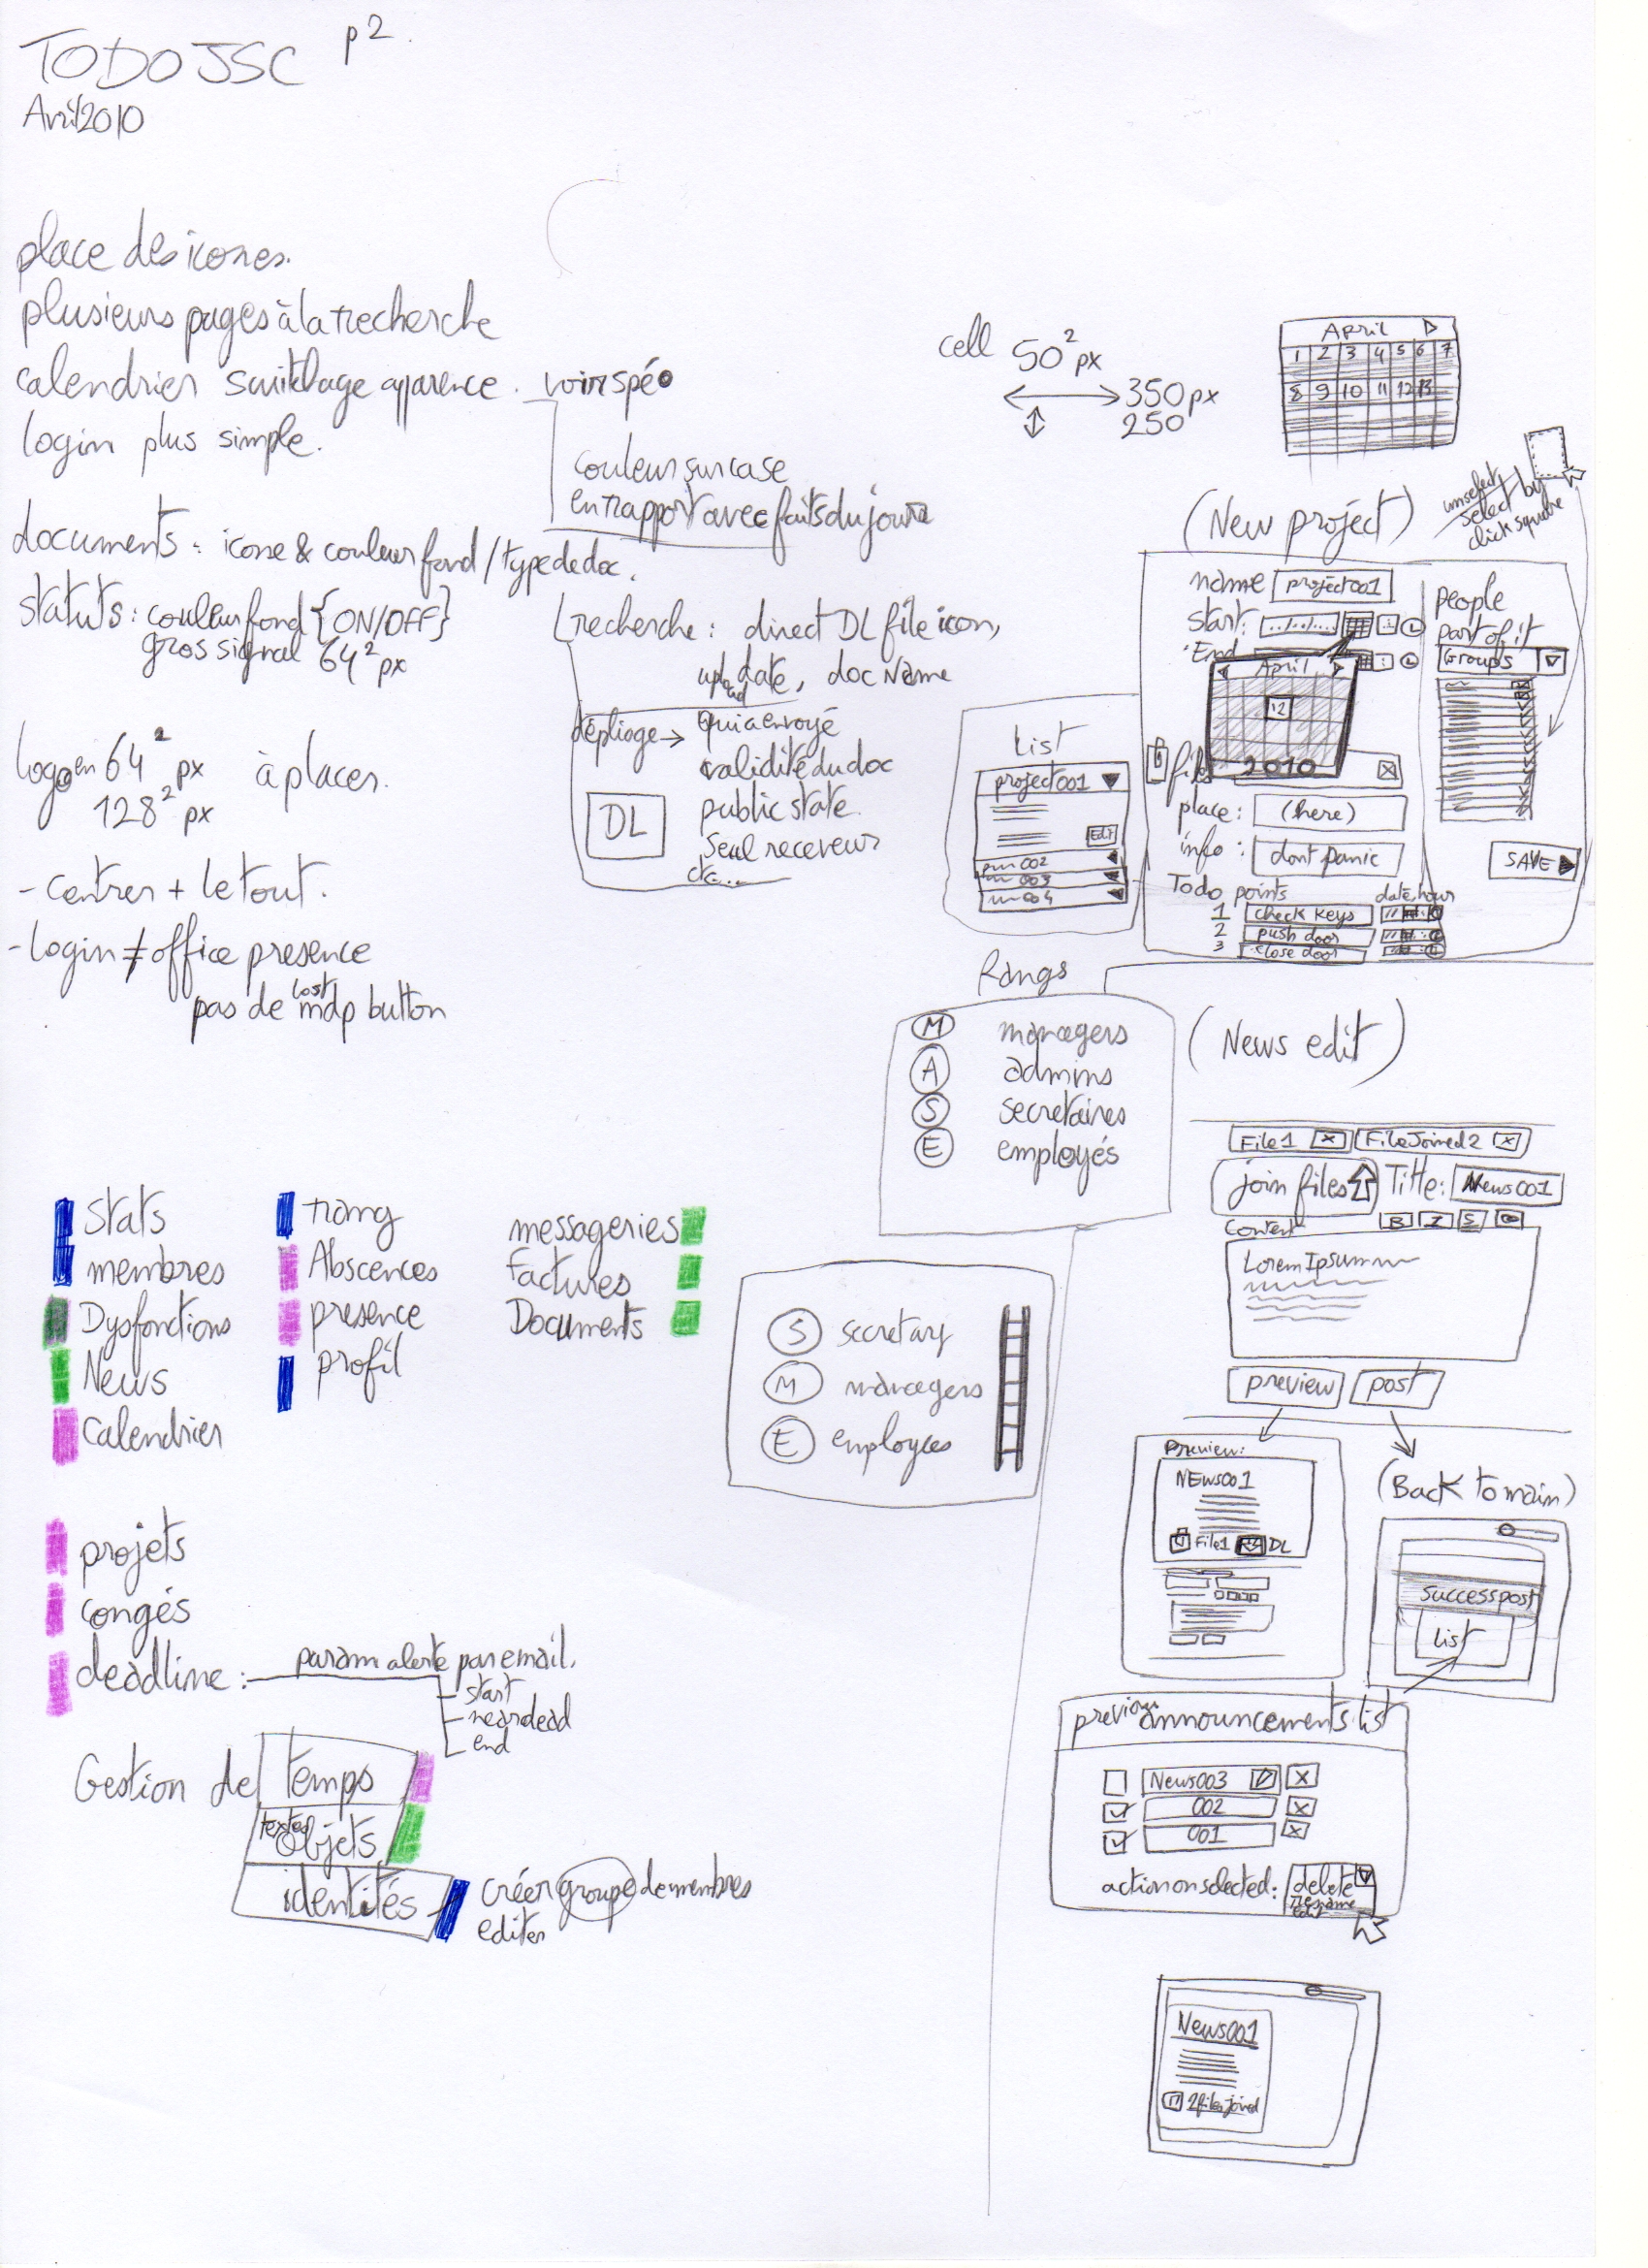 TODO JSC p2.
Avril 2010
place des icones.
plusieurs pages à la recherche
calendrier switchage apparence. voir spé
login plus simple.
couleur sur case
en rapport avec faits du jour
documents: icone & couleur fond / type de doc.
statuts: couleur fond {ON/OFF}
gros signal 64² px
recherche: direct DL file icon,
upload date, doc Name
dépliage → qui a envoyé
validité du doc
public state.
Seul receveur
etc...
DL
logo en 64² px à placer.
128² px
- centrer + le tout.
- login ≠ office presence
pas de lost mdp button
cell 50² px
350 px
250
April
1 2 3 4 5 6 7
8 9 10 11 12 13
(New project)
unselect
select by
click square
name project001
start: ../../...
End
April
12
2010
people
part of it
Groups
files
place: (here)
info: dont panic
SAVE
Todo points date, hour
1 check keys
2 push door
3 close door
List
project001
Edit
002
003
004
Rangs
M managers
A admins
S secretaires
E employés
(News edit)
File1 x FileJoined2 x
join files Title: News001
Content B I S
Lorem Ipsum
preview post
Preview:
NEWS001
File1 DL
(Back to main)
success post
List
previous announcements list
News003 x
002 x
001 x
action on selected: delete
rename
edit
News001
2 files joined
stats
membres
Dysfonctions
News
Calendrier
rang
Abscences
presence
profil
messageries
Factures
Documents
S secretary
M managers
E employees
projets
congés
deadline: param alerte par email.
start
near dead
end
Gestion de temps
textes objets
identités
créer groupe de membres
editer